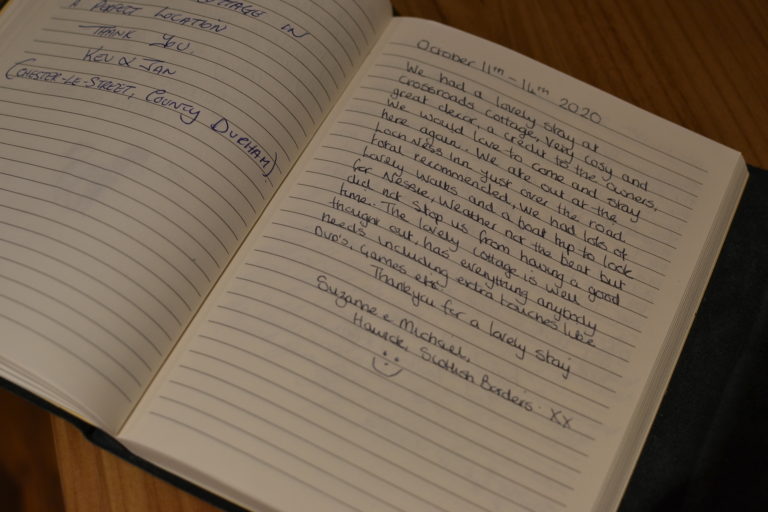 COTTAGE IN
A PERFECT LOCATION
THANK YOU.
KEV & JAN
(CHESTER-LE-STREET, COUNTY DURHAM)
October 11th - 14th 2020
We had a lovely stay at
crossroads cottage, very cosy and
great decor, a credit to the owners.
We would love to come and stay
here again. We ate out at the
Loch Ness Inn just over the road,
total recommended, we had lots of
lovely walks and a boat trip to look
for Nessie, Weather not the best but
did not stop us from having a good
time. The lovely cottage is well
thought out, has everything anybody
needs including extra touches like
DVD's, games etc.
Thankyou for a lovely stay
Suzanne & Michael,
Hawick, Scottish Borders. XX